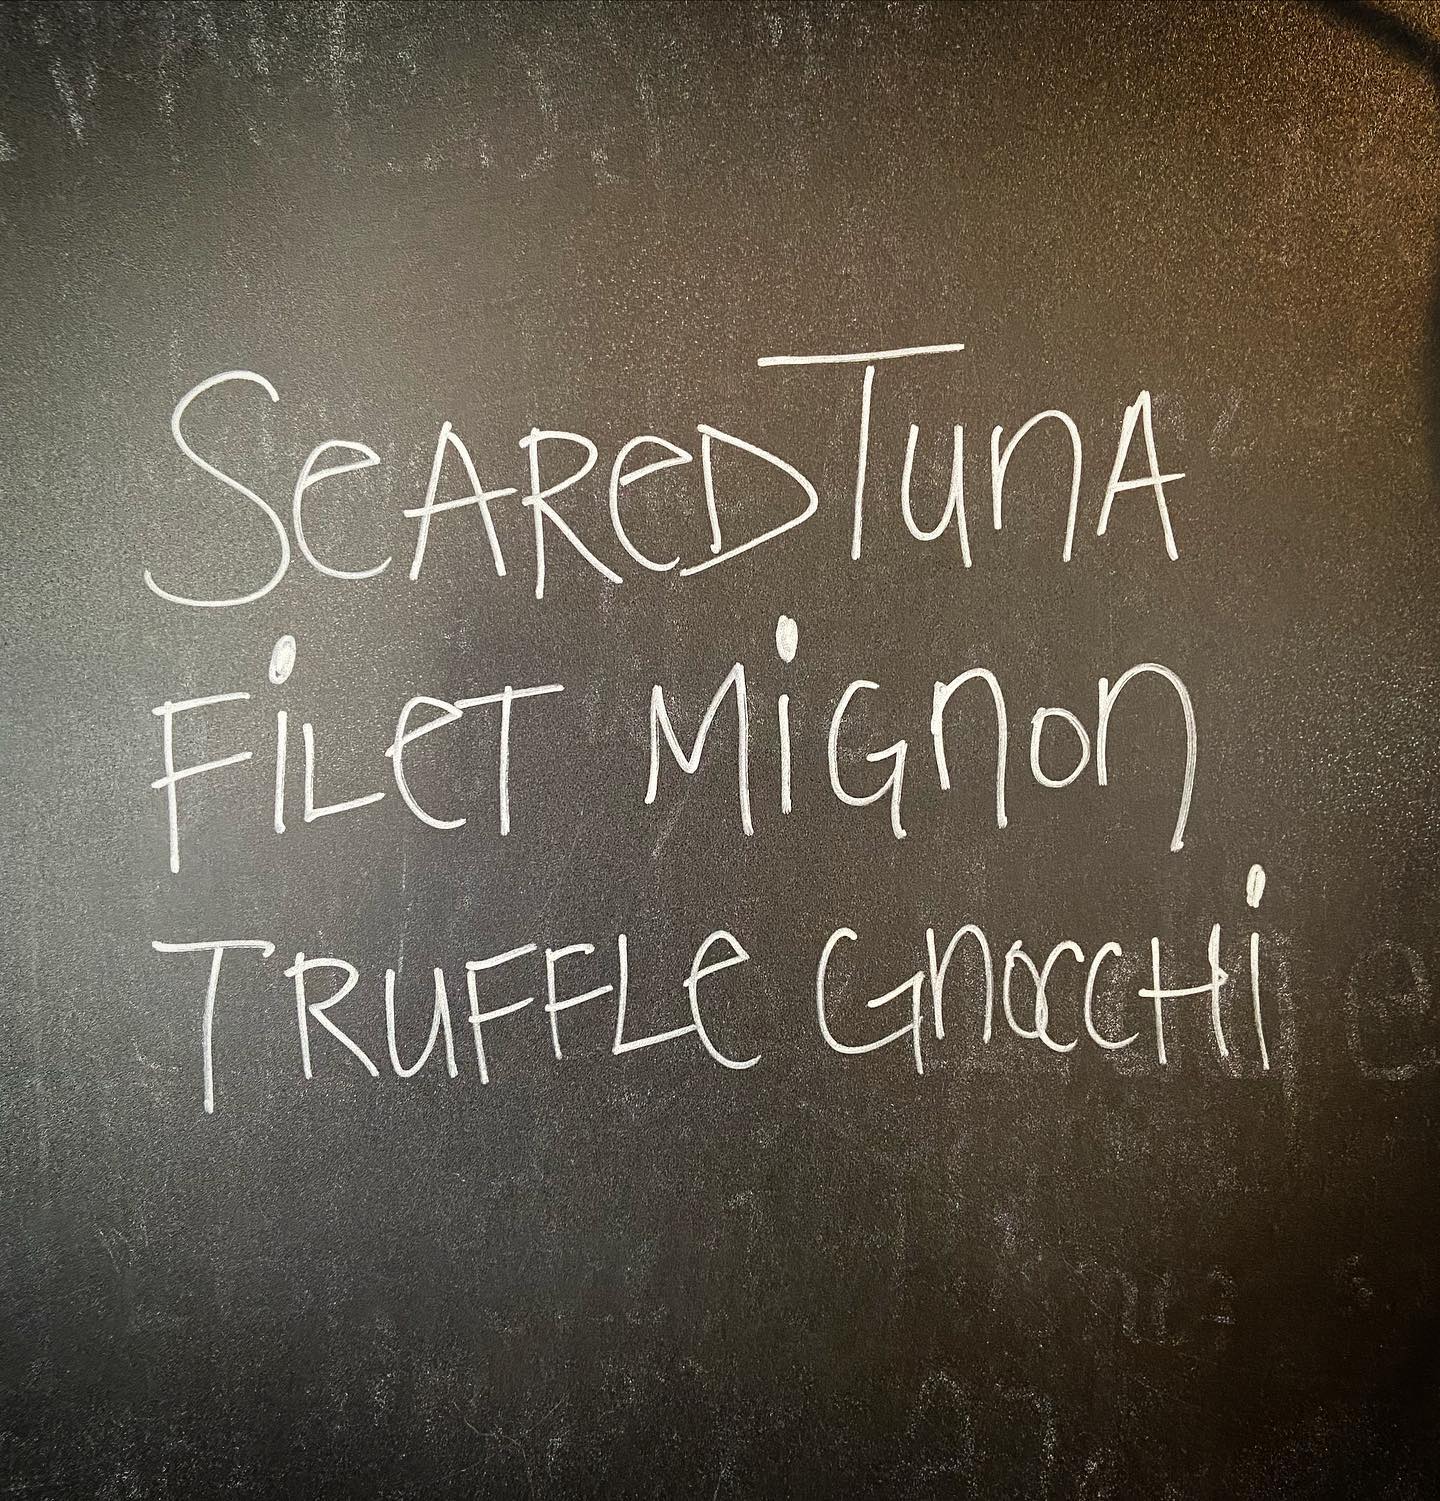 SeAReD TunA
FiLeT MiGnon
TRuFFLe GnocCHi